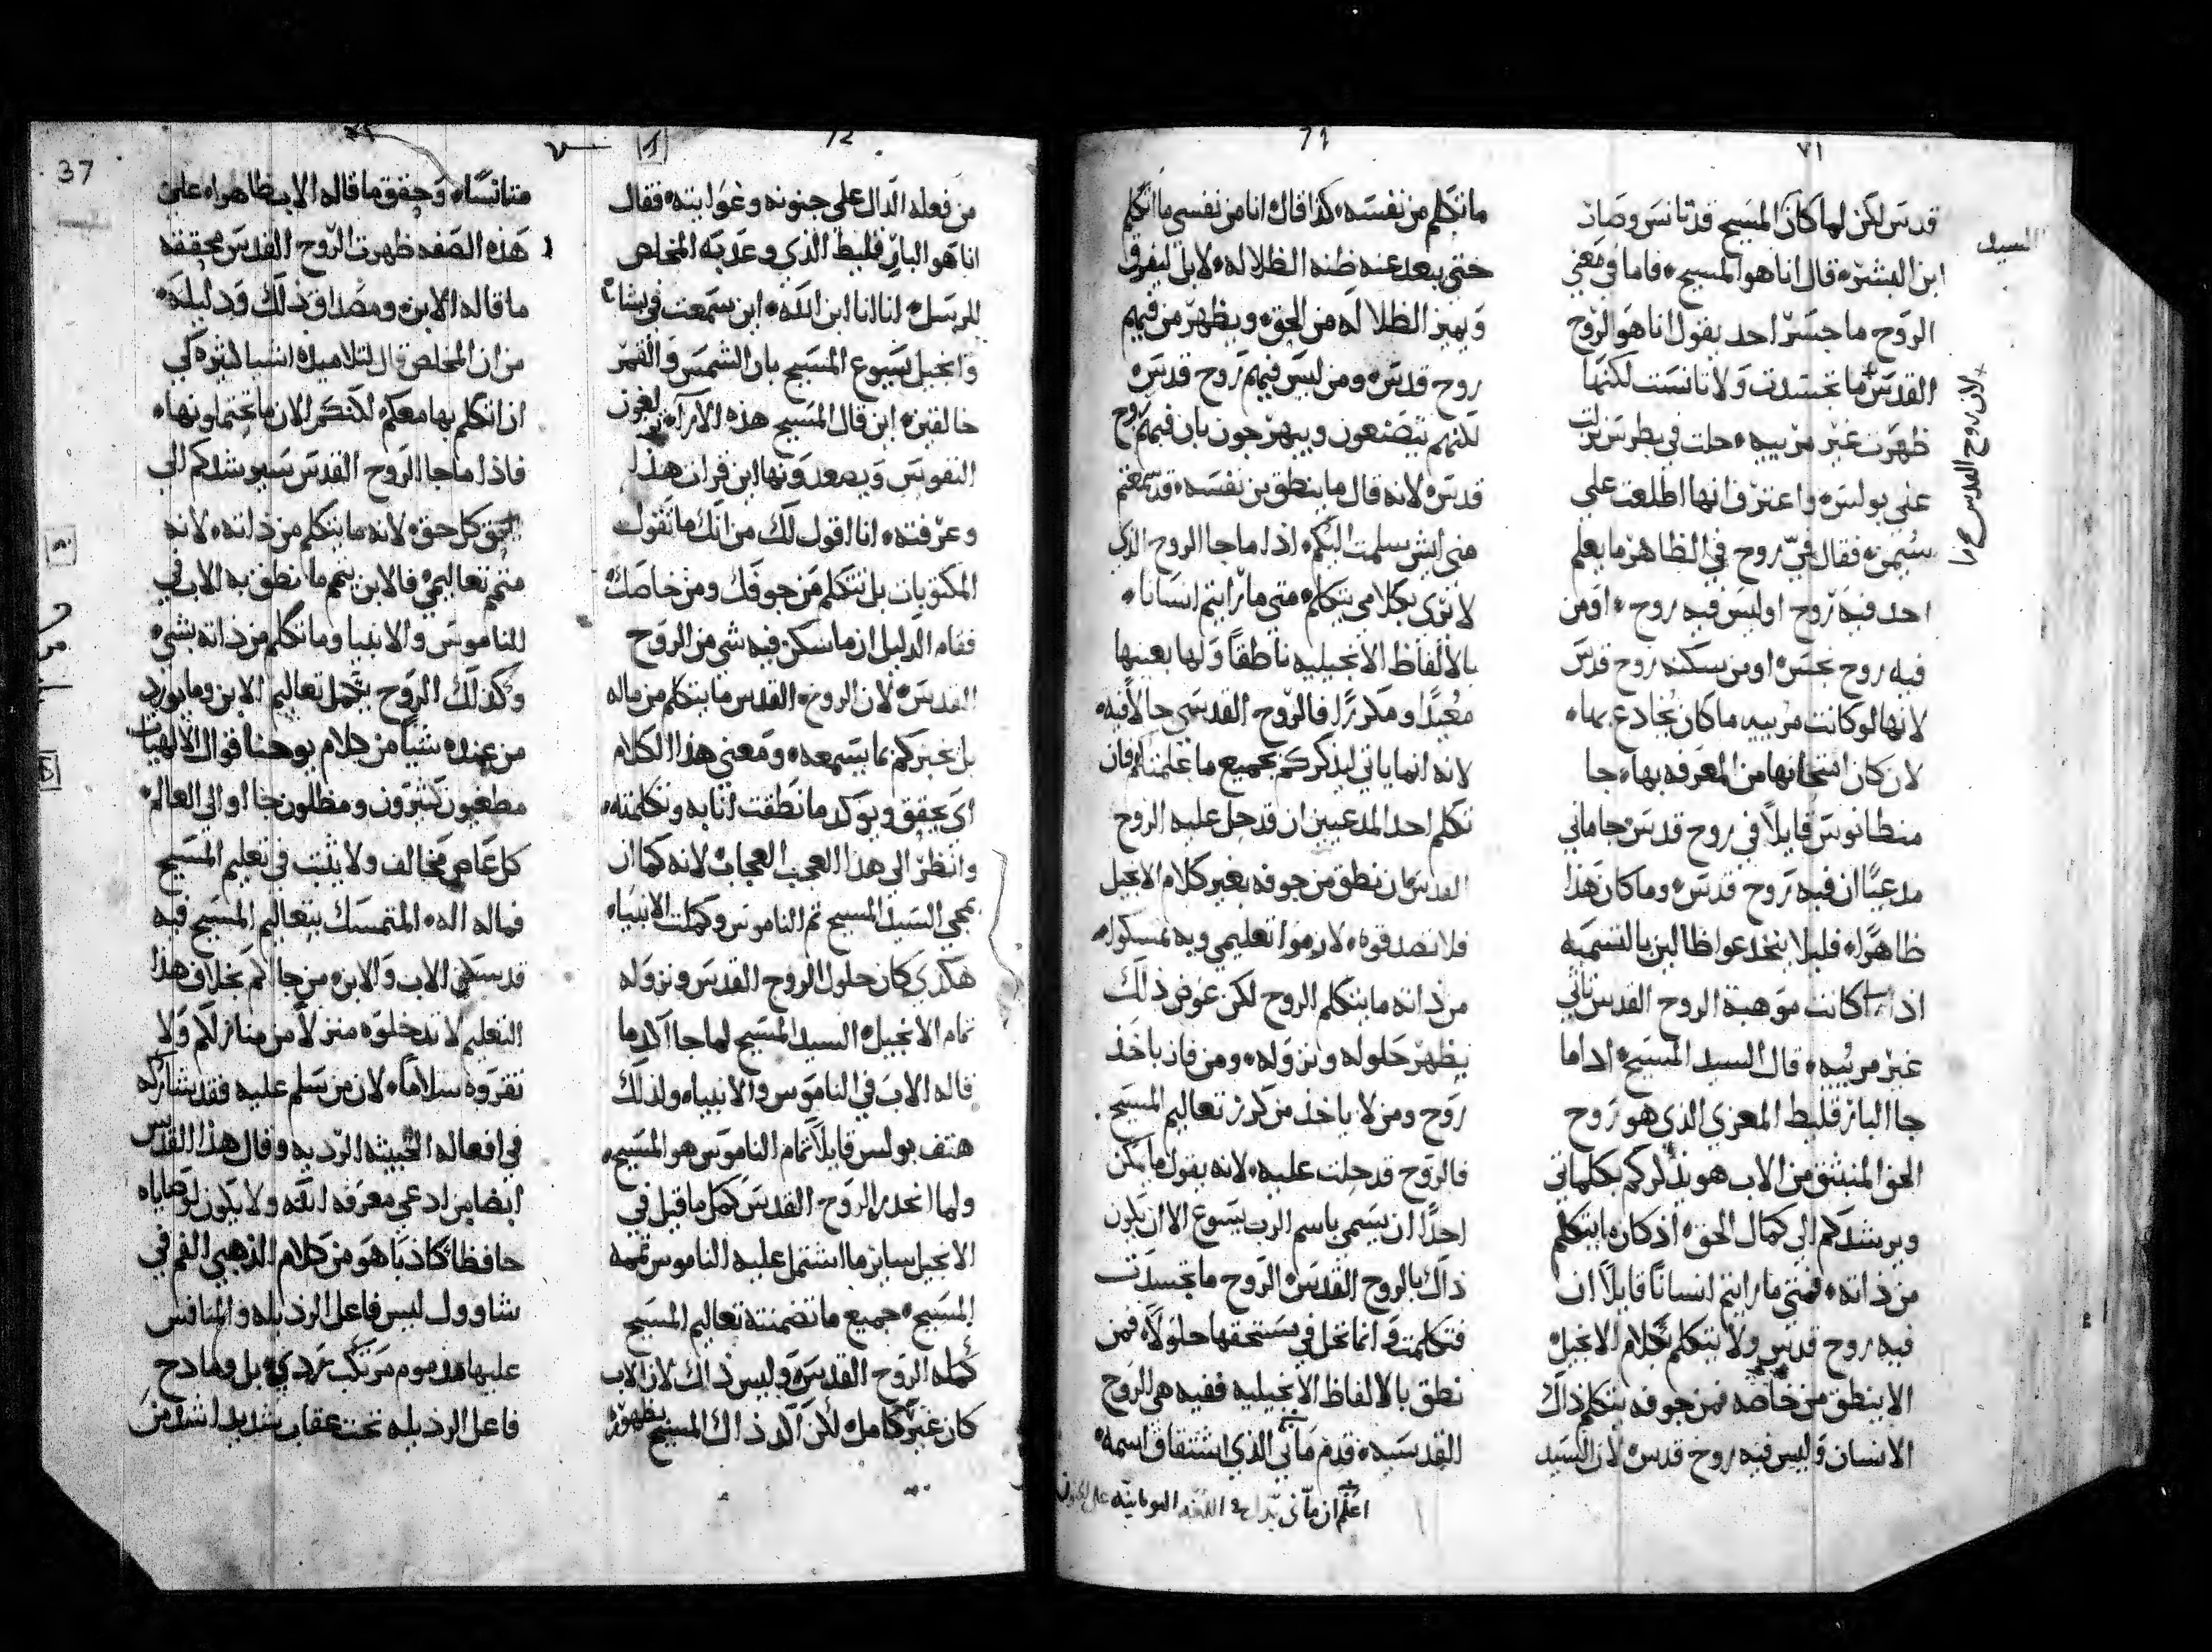 71
٧١
قدس لكن لما كان المسيح قد تانس وصار
ابن البشر قال انا هو المسيح فاما في معني
الروح ما جسر احد يقول انا هو الروح
القدس ما تجسدت ولا تانست لكنها
ظهرت غير مرييه حلت في بطرس نزلت
علي بولس واعترف انها اطلعت علي
سيمن فقال في روح في الظاهر ما يعلم
احد فيه روح او ليس فيه روح اومن
فيه روح نجس اومن يسكنه روح قدس
لانها لو كانت مرييه ما كان يخادع بها
لان كان امتحانها من المعرفه بها جا
منطانوس قايلاً في روح قدس جا ماني
مدعيًا ان فيه روح قدس وما كان هذا
ظاهرًا فليلا ينخدعوا ظالين بالتسميه
اذا كانت موهبة الروح القدس تاتي
غير مرييه قال السيد المسيح اذا ما
جا البارقليط المعزي الذي هو روح
الحق المنبثق من الاب هو يذكركم بكلماتي
ويرشدكم الي كمال الحق اذ كان ما يتكلم
من ذاته فمتي ما رايتم انسانًا قايلاً ان
فيه روح قدس ولا يتكلم بكلام الانجيل
الا ينطق من خاصه فمن جوفه يتكلم ذاك
الانسان وليس فيه روح قدس لان السيد
السيد
لان روح القدس
ما تكلم من نفسه كذا قال انا من نفسي ما اتكلم
حتي يبعد عنه ظنه الظلاله لابل ليفرق
ويميز الظلاله من الحق ويظهر من فيهم
روح قدس ومن ليس فيهم روح قدس
لكنهم يتصنعون ويبهرجون بان فيهم روح
قدس لانه قال ما ينطق من نفسه قد سمعتم
مني ايش سلمت اليكم اذا ما جا الروح الذي
لا يرى بكلامي يتكلم متي ما رايتم انسانا
بالالفاظ الانجيليه ناطقاً ولها بعينها
معيدًا ومكررًا فالروح القدسي حالاً فيه
لانه انما ياتي ليذكركم بجميع ما علمتكم فان
تكلم احد المدعيين ان قد حل عليه الروح
القدس ان نطق من جوفه بغير كلام الانجيل
فلا تصدقوه لازموا تعليمي وبه تمسكوا
من ذاته ما يتكلم الروح لكن عوض ذلك
يظهر حلوله ونزوله ومن فاز باخذ
روح ومن لا ياخذ من كرر تعاليم المسيح
فالروح قد حلت عليه لانه يقول ما يمكن
احدًا ان يسمي باسم الرب يسوع الا ان يكون
ذاك بالروح القدس الروح ما تجسدت
فتكلمت وانما تحل في مستحقها حلولاً فمن
نطق بالالفاظ الانجيليه ففيه هي الروح
القدسيه قدم ماني الذي اشتقاق اسمه
اعلم ان ماني اللغه اليونانيه
72
من فعله الدال علي جنونه وغوايته فقال
انا هو البارقليط الذي وعد به المخلص
للرسل انا انا ابن الله اين سمعت في بشارة
وانجيل يسوع المسيح بان الشمس والقمر
خالقين اين قال المسيح هذه الارآء
النفوس ويصعدونها اين قران هذا
وعرفته انا اقول لك من انك ما تقول
المكتوبات بل تتكلم من جوفك ومن خاصك
فقام الدليل ان ما سكن فيه شي من الروح
القدس لان الروح القدس ما يتكلم من ماله
بل يخبركم بما يسمعه ومعني هذا الكلام
اي يحقق ويوكد ما نطقت انا به وتكلمته
وانظر الي هذا العجب العجاب لانه كما ان
بمجي السيد المسيح تم الناموس وكملت الانبياء
هكذي كان حلول الروح القدس ونزوله
تمام الانجيل السيد المسيح لما جا اكد ما
قاله الاب في الناموس والانبياء ولذلك
هتف بولس قايلاً تمام الناموس هو المسيح
ولما انحدر الروح القدس كمل ما قيل في
الانجيل ساير ما اشتمل عليه الناموس تممه
المسيح جميع ما تضمنته تعاليم المسيح
كمله الروح القدس وليس ذاك لان الاب
كان غير كامل لكن اكد ذاك المسيح بظهوره
37
متانسًا وحقق ما قاله الاب ظاهرا علي
هذه الصفه ظهرت الروح القدس محققه
ما قاله الابن ومصداق ذلك ودليله
من ان المخلص قال لتلاميذه اشيا كثيره لي
ان اتكلم بها معكم لكنكم الان ما تحتملونها
فاذا ما جا الروح القدس سيرشدكم الي
الحق كل حق لانه ما يتكلم من ذاته لانه
متمم تعاليمي فالابن يتمم ما نطق به الاب في
للناموس والانبيا وما تكلم من ذاته بشي
وكذلك الروح يكمل تعاليم الابن وما يورد
من عنده شيًا من كلام يوحنا قوال الالهيات
مطغيون كثيرون ومظلون جااوا الي العالم
كل عاص مخالف ولا يثبت في تعليم المسيح
فماله اله المتمسك بتعاليم المسيح فيه
قد سكن الاب والابن من جا لكم بخلاف هذا
التعليم لا تدخلوه منزلاً من منازلكم ولا
تقروه سلاماً لان من سلم عليه فقد شاركه
في افعاله الخبيثه الرديه وقال هذا القديس
ايضا من ادعي معرفه الله ولا يكون لوصاياه
حافظا كاذبًا هو من كلام الذهبي الفم في
شاوول ليس فاعل الرذيله والمنافس
عليها مذموم مرتكب ردي بل ومادح
فاعل الرذيله تحت عقاب شديد اشد من